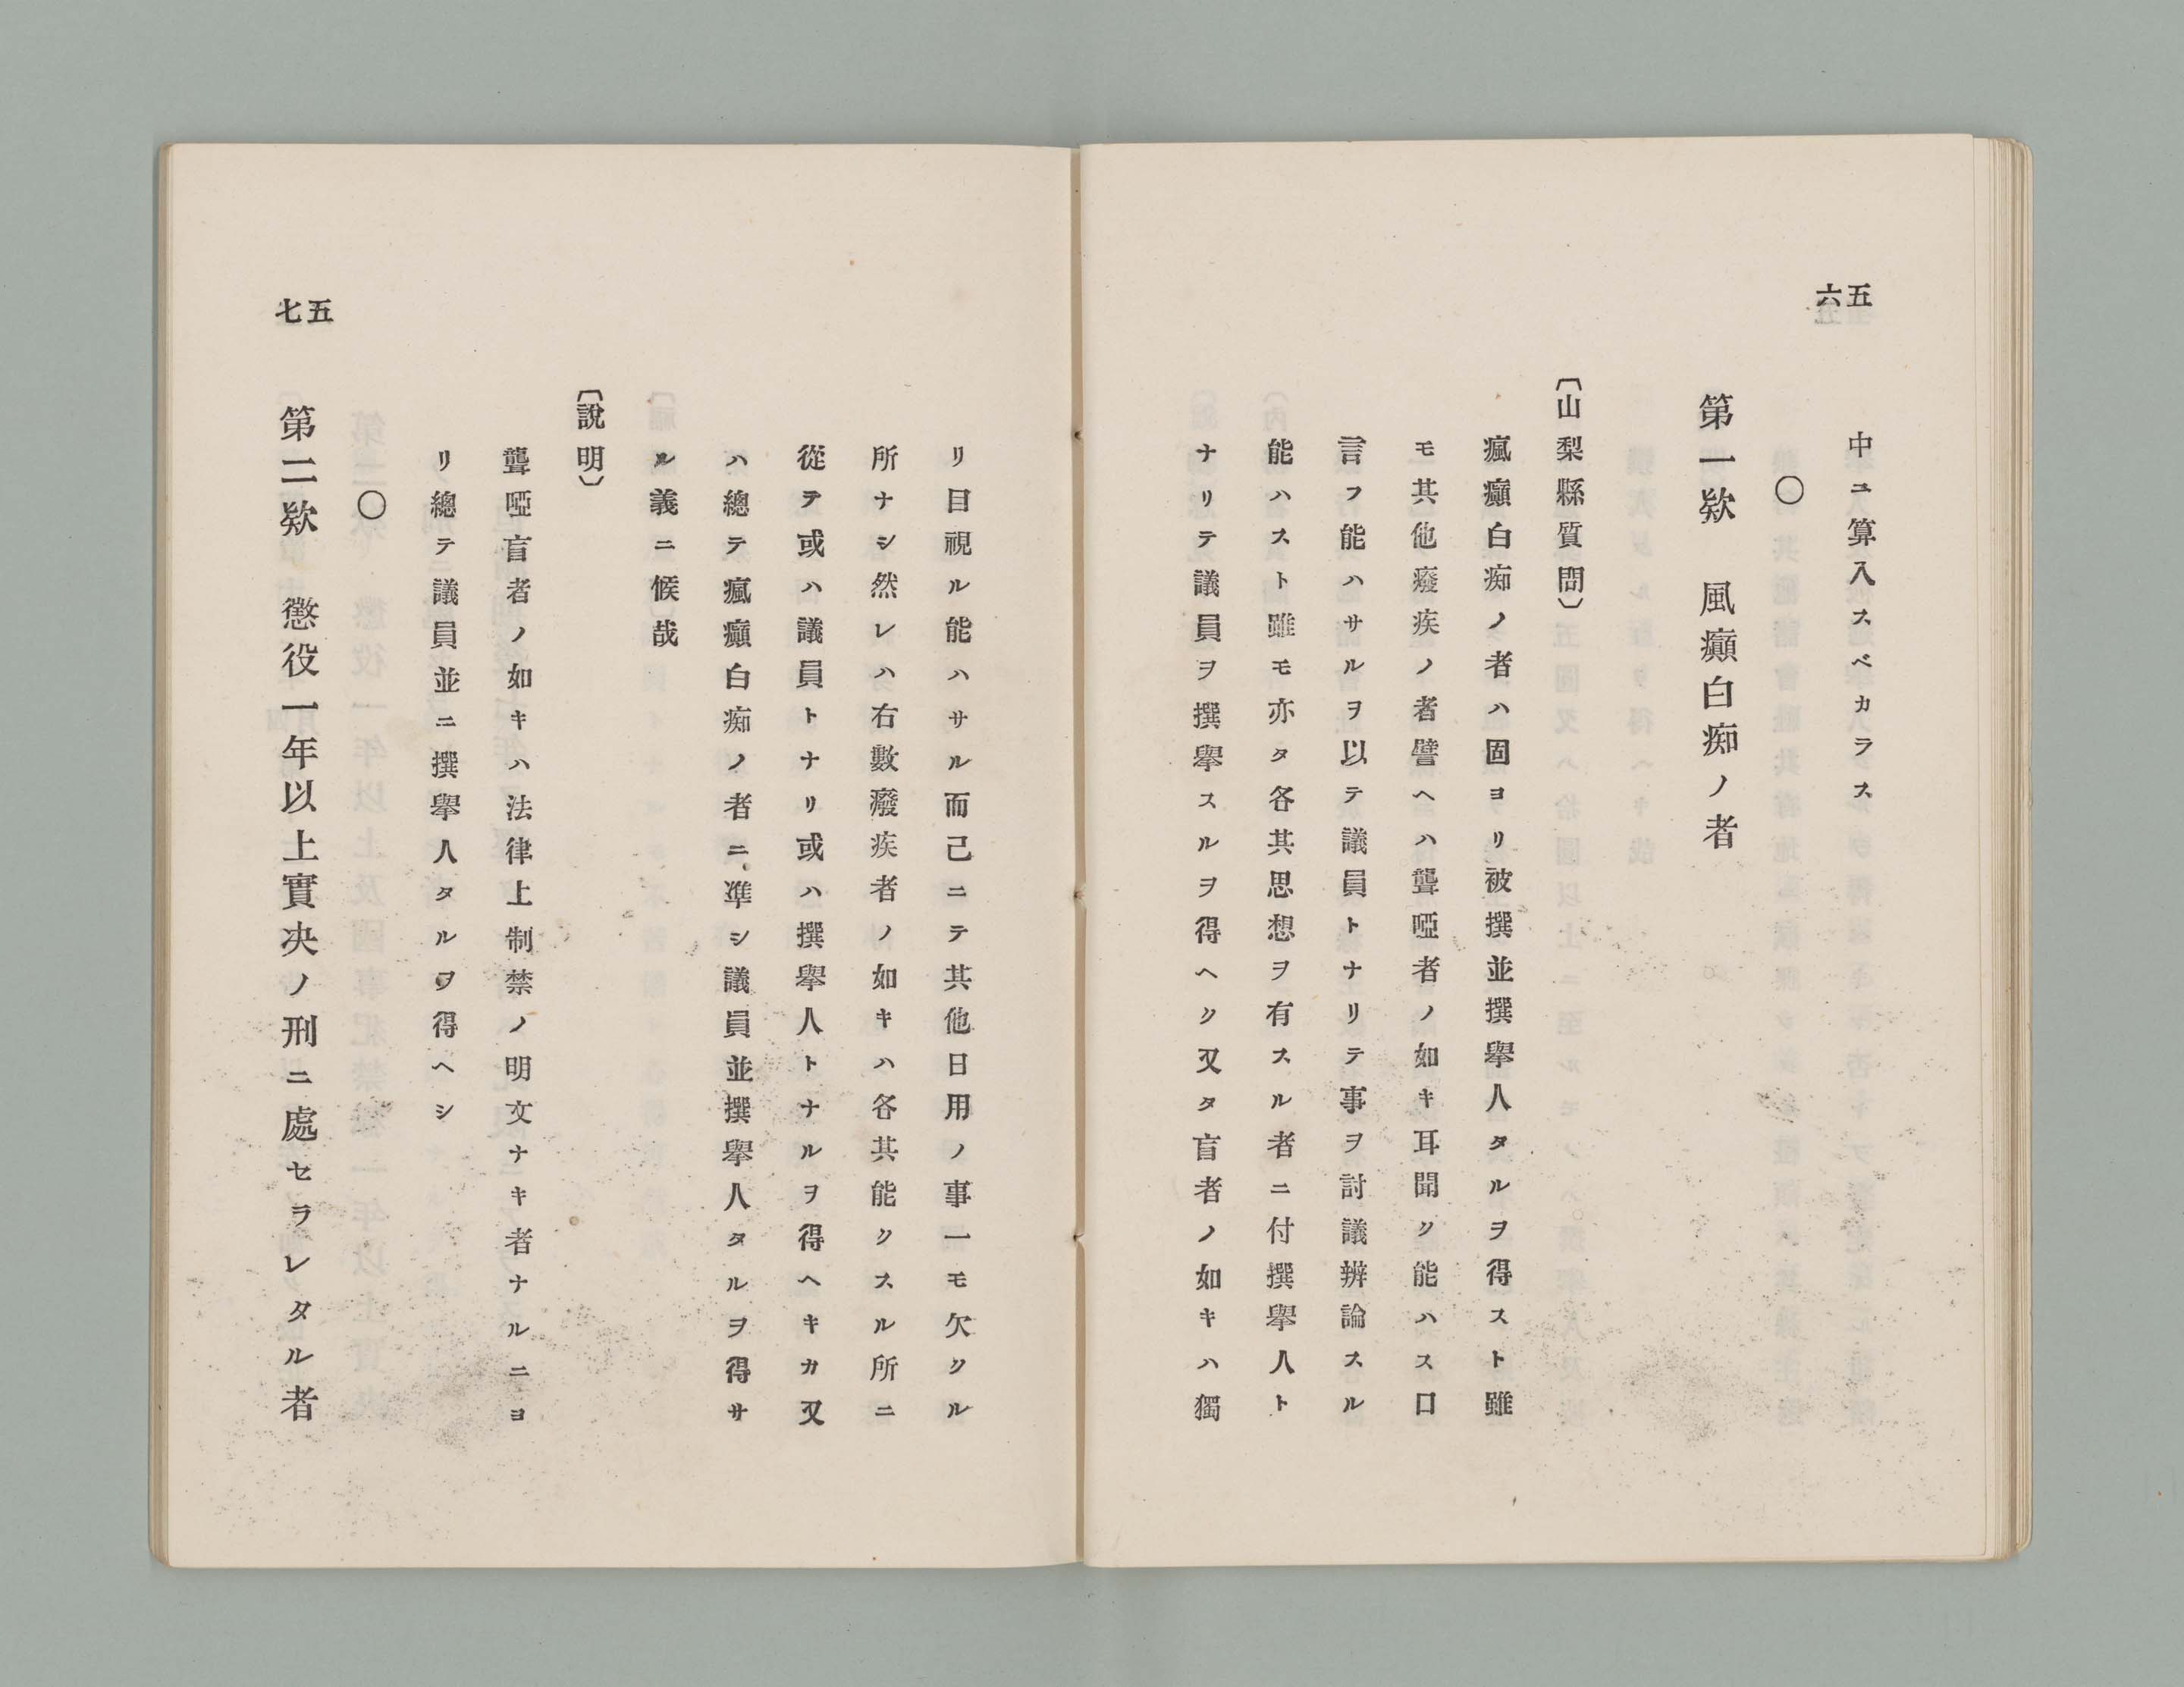 五六
中ニ算入スベカラス
○
第一欵　風癲白痴ノ者
〔山梨縣質問〕
瘋癲白痴ノ者ハ固ヨリ被撰並撰擧人タルヲ得スト雖
モ其他癈疾ノ者譬ヘハ聾啞者ノ如キ耳聞ク能ハス口
言フ能ハサルヲ以テ議員トナリテ事ヲ討議辨論スル
能ハスト雖モ亦タ各其思想ヲ有スル者ニ付撰擧人ト
ナリテ議員ヲ撰擧スルヲ得ヘク又タ盲者ノ如キハ獨
リ目視ル能ハサル而己ニテ其他日用ノ事一モ欠クル
所ナシ然レハ右數癈疾者ノ如キハ各其能クスル所ニ
從テ或ハ議員トナリ或ハ撰擧人トナルヲ得ヘキカ又
ハ總テ瘋癲白痴ノ者ニ準シ議員並撰擧人タルヲ得サ
ル義ニ候哉
〔說明〕
聾啞盲者ノ如キハ法律上制禁ノ明文ナキ者ナルニヨ
リ總テ議員並ニ撰擧人タルヲ得ヘシ
○
第二欵　懲役一年以上實决ノ刑ニ處セラレタル者
五七